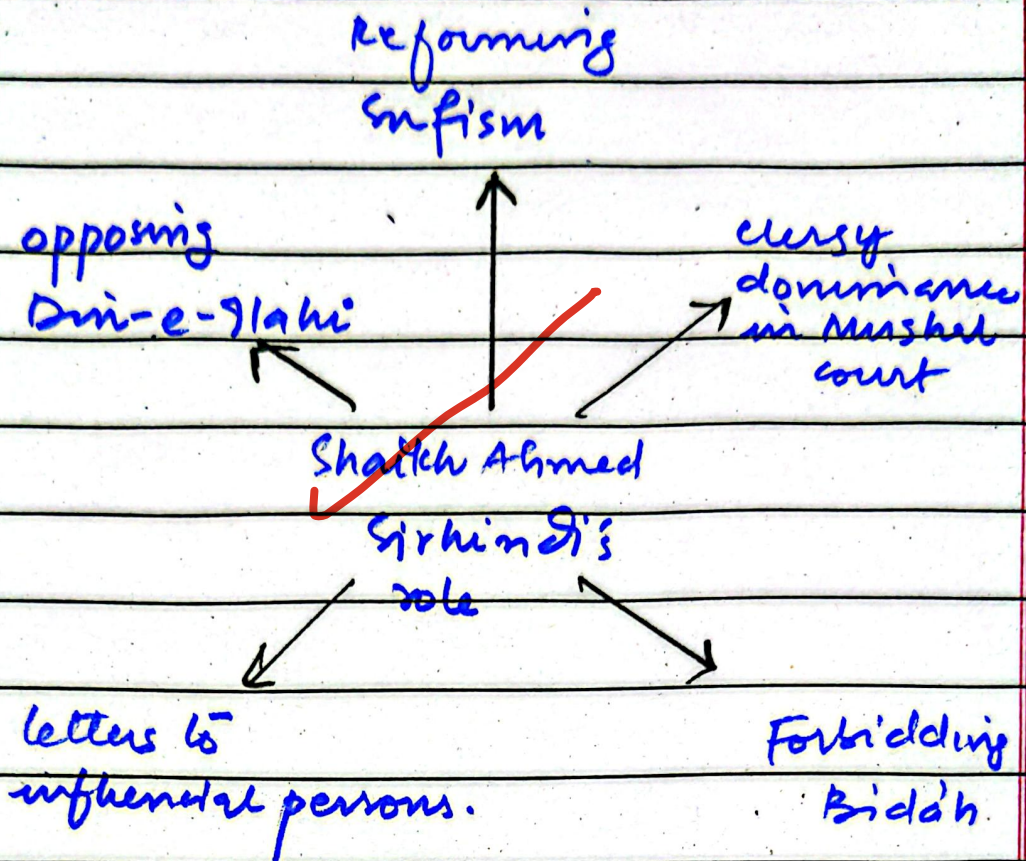 Reforming
Sufism
opposing
Din-e-Ilahi
clergy
dominance
in Mughal
court
Shaikh Ahmed
Sirhindi's
role
letters to
influencial persons.
Forbidding
Bidáh